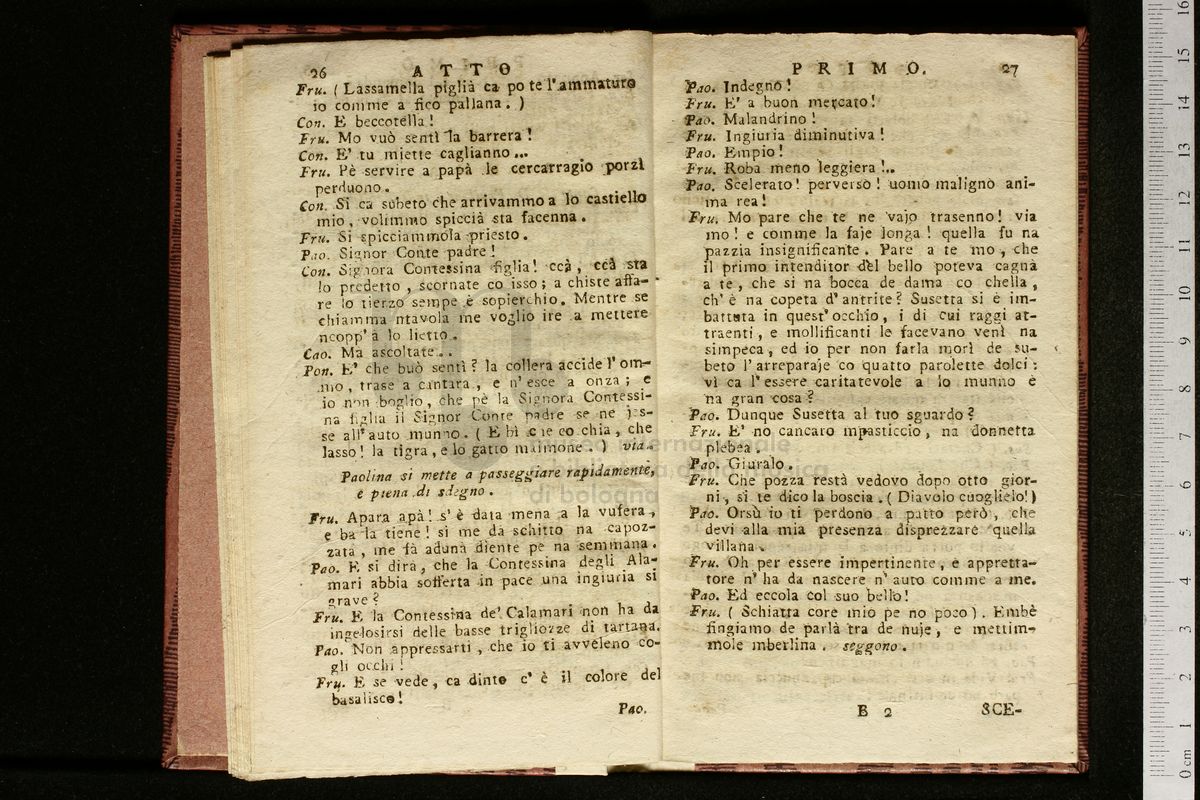 26 ATTO
Fru. ( Lassamella piglià ca po te l'ammaturo
io comme a fico pallana. )
Con. E beccotella!
Fru. Mo vuò sentì la barrera!
Con. E' tu miette caglianno...
Fru. Pè servire a papà le cercarraggio porzì
perduono.
Con. Sì ca subeto che arrivammo a lo castiello
mio, volimmo spiccià sta facenna.
Fru. Si spicciammola priesto.
Pao. Signor Conte padre!
Con. Signora Contessina figlia! ccà, ccà sta
lo predetto, scornate co isso; a chiste affa-
re lo tierzo sempe è sopierchio. Mentre se
chiamma ntavola me voglio ire a mettere
ncopp' à lo lietto.
Cao. Ma ascoltate...
Pon. E' che buò sentì? la collera accide l'om-
mo, trase a cantara, e n'esce a onza; e
io non boglio, che pè la Signora Contessi-
na figlia il Signor Conte padre se ne jes-
se all'auto munno. ( E bì che co chia, che
lasso! la tigra, e lo gatto maimone ) via.
Paolina si mette a passeggiare rapidamente,
e piena di sdegno.
Fru. Apara apà! s' è data mena a la vufera,
e ba la tiene! si me dà schitto na capoz-
zata, me fà adunà diente pe na semmana.
Pao. E si dirà, che la Contessina degli Ala-
mari abbia sofferta in pace una ingiuria si
grave?
Fru. E la Contessina de' Calamari non ha da
ingelosirsi delle basse trigliozze di tartana.
Pao. Non appressarti, che io ti avveleno co-
gli occhi!
Fru. E se vede, ca dinto c' è il colore del
basalisco!
Pao.
PRIMO. 27
Pao. Indegno!
Fru. E' a buon mercato!
Pao. Malandrino!
Fru. Ingiuria diminutiva!
Pao. Empio!
Fru. Roba meno leggiera!..
Pao. Scelerato! perverso! uomo maligno ani-
ma rea!
Fru. Mo pare che te ne vajo trasenno! via
mo! e comme la faje longa! quella fu na
pazzia insignificante. Pare a te mo, che
il primo intenditor del bello poteva cagnà
a te, che si na bocca de dama co chella,
ch' è na copeta d'antrite? Susetta si è im-
battuta in quest'occhio, i di cui raggi at-
traenti, e mollificanti le facevano venì na
simpeca, ed io per non farla morì de su-
beto l'arreparaje co quattro parolette dolci:
vì ca l'essere caritatevole a lo munno è
na gran cosa?
Pao. Dunque Susetta al tuo sguardo?
Fru. E' no cancaro mpasticcio, na donnetta
plebea.
Pao. Giuralo.
Fru. Che pozza restà vedovo dopo otto gior-
ni, si te dico la boscia. ( Diavolo cuoglielo! )
Pao. Orsù io ti perdono a patto però, che
devi alla mia presenza disprezzare quella
villana.
Fru. Oh per essere impertinente, e appretta-
tore n' ha da nascere n' auto comme a me.
Pao. Ed eccola col suo bello!
Fru. ( Schiatta core mio pe no poco ). Embè
fingiamo de parlà tra de nuje, e mettim-
mole mberlina. seggono.
B 2 SCE-
museo internazionale
della musica
di bologna